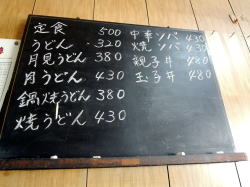 定食 500
うどん 320
月見うどん 380
肉うどん 430
鍋焼うどん 380
焼うどん 430
中華ソバ 430
焼ソバ 430
親子丼 480
玉子丼 480